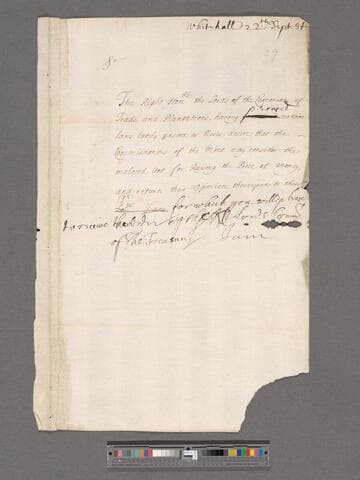 Whitehall 22th Sept 98
29
Sr
The Right Honble the Lords of the Commrs of
Trade and Plantations, having perused certain
laws lately passed at Nevis, desire that the
Commissioners of the Mint may consider the
inclosed Act for Raising the Price of money,
and return their Opinion thereupon to their
for which you will please
to receive the order of the Lords Commrs
of the Treasury I am